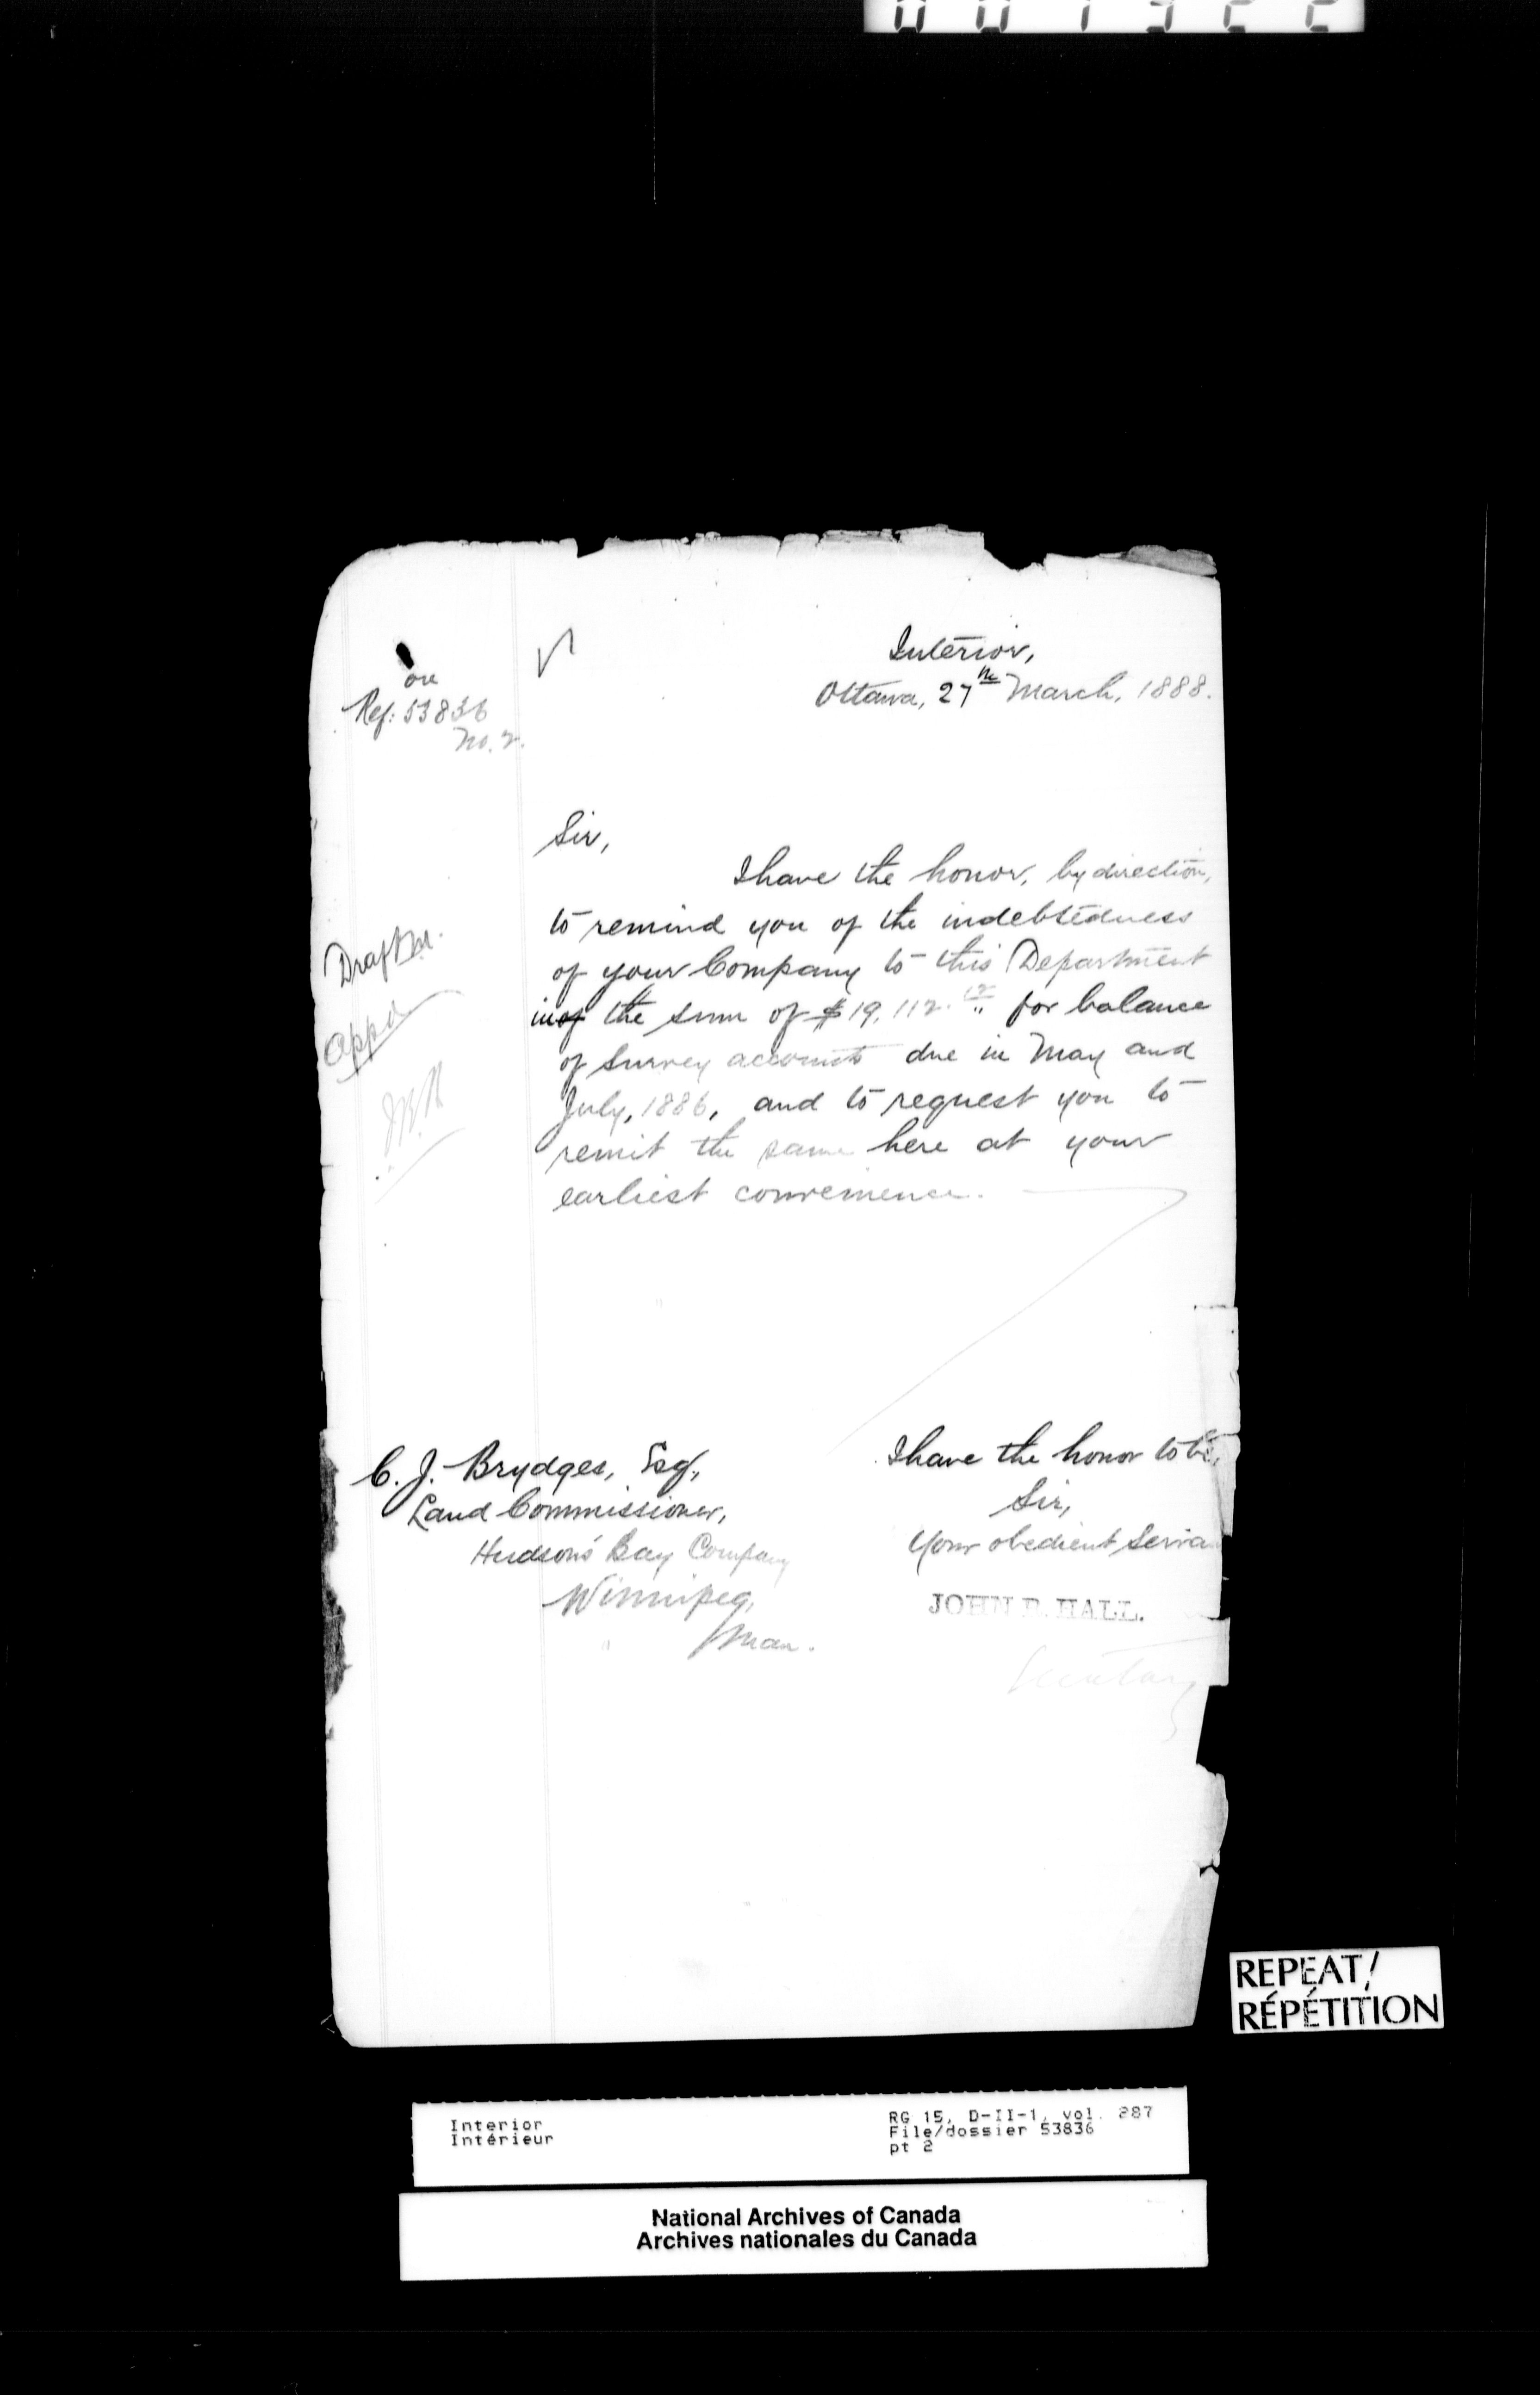 001322
Interior,
Ottawa, 27th March, 1888.
on
Ref: 53836
No. 2.
Sir,
I have the honor, by direction,
to remind you of the indebtedness
of your Company to this Department
in of the sum of $19,112.12 for balance
of survey accounts due in May and
July, 1886, and to request you to
remit the same here at your
earliest convenience.
Draft
Appd
I have the honor to be,
Sir,
Your obedient Serva
JOHN R. HALL.
Secretary
C. J. Brydges, Esq.,
Land Commissioner,
Hudson's Bay Company
Winnipeg,
Man.
REPEAT/
RÉPÉTITION
Interior
Intérieur
RG 15, D-II-1, vol. 287
File/dossier 53836
pt 2
National Archives of Canada
Archives nationales du Canada